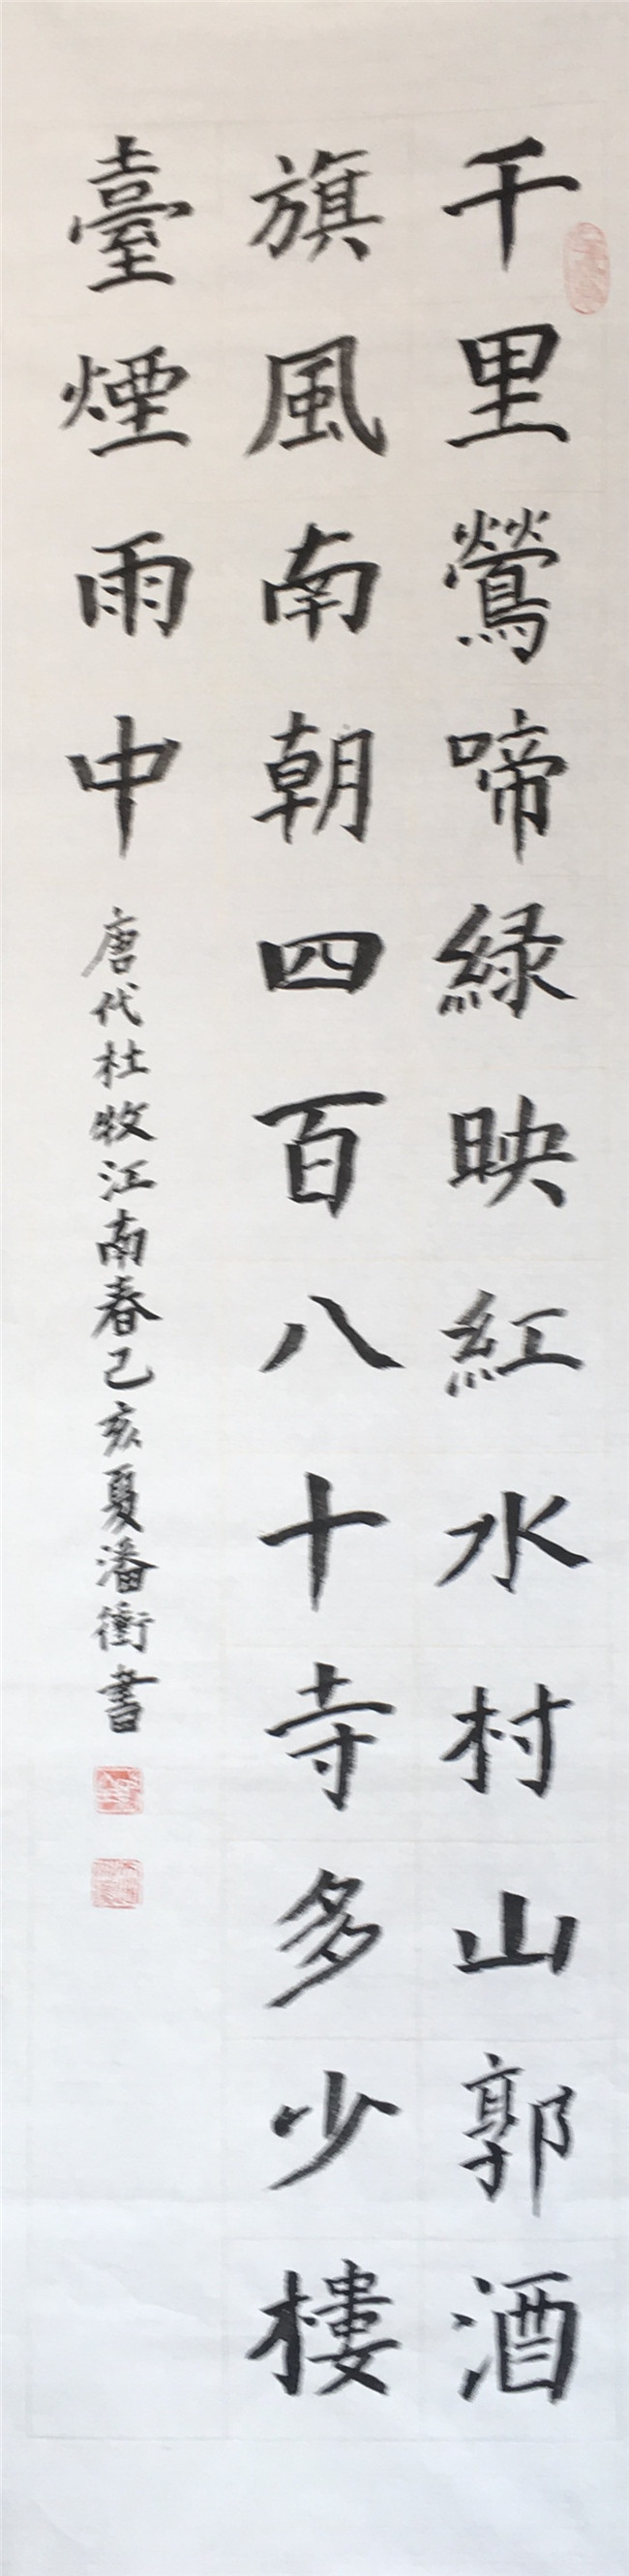 千里鶯啼緑映紅水村山郭酒
旗風南朝四百八十寺多少樓
臺煙雨中
唐代杜牧江南春己亥夏潘衝書